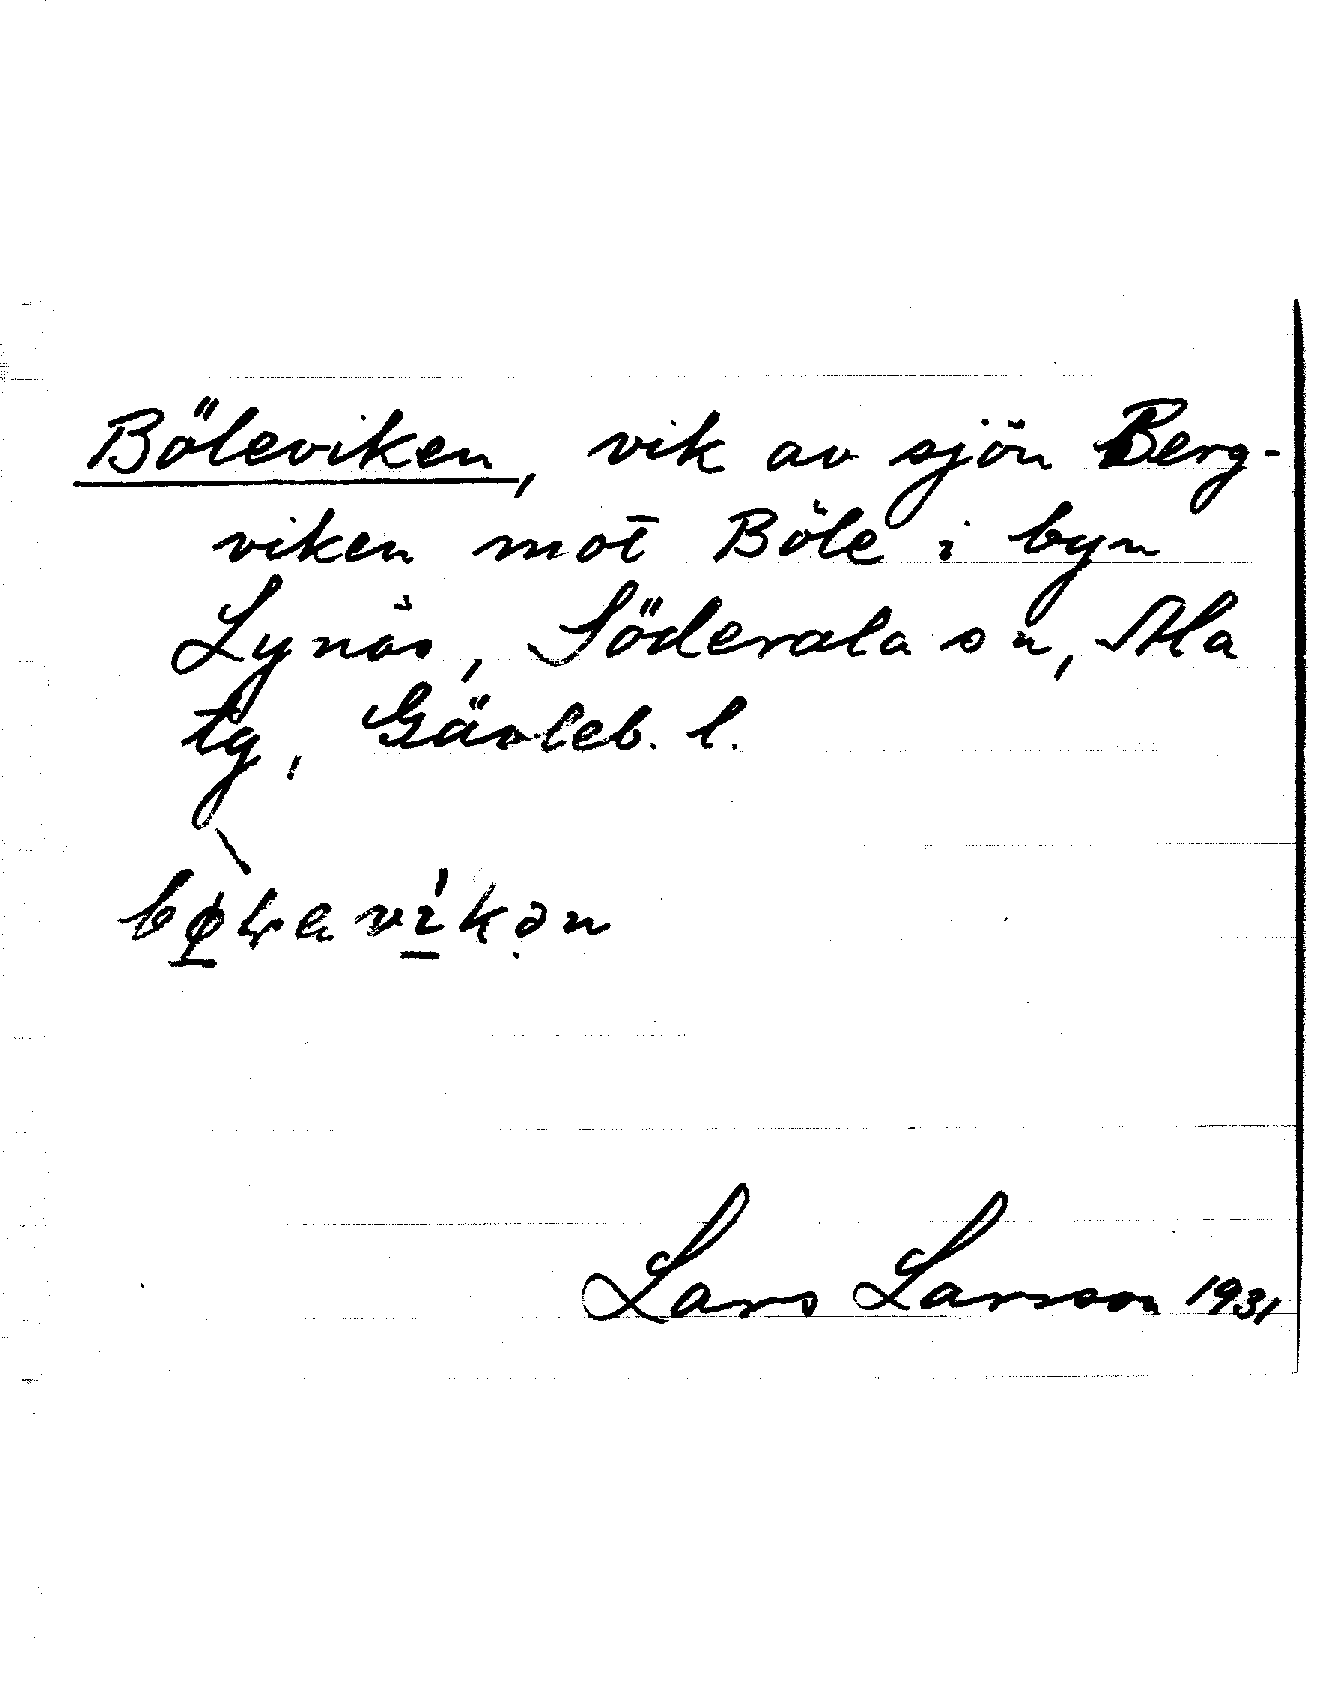 Böleviken, vik av sjön Berg-
viken mot Böle i byn
Lynäs, Söderala sn, Ala
tg, Gävleb. l.
Lars Larsson 1931